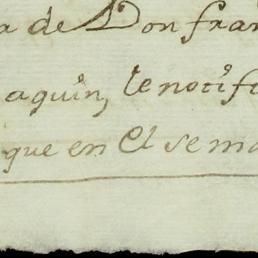 a de Don fran
aquin, le notifi
que en El se ma